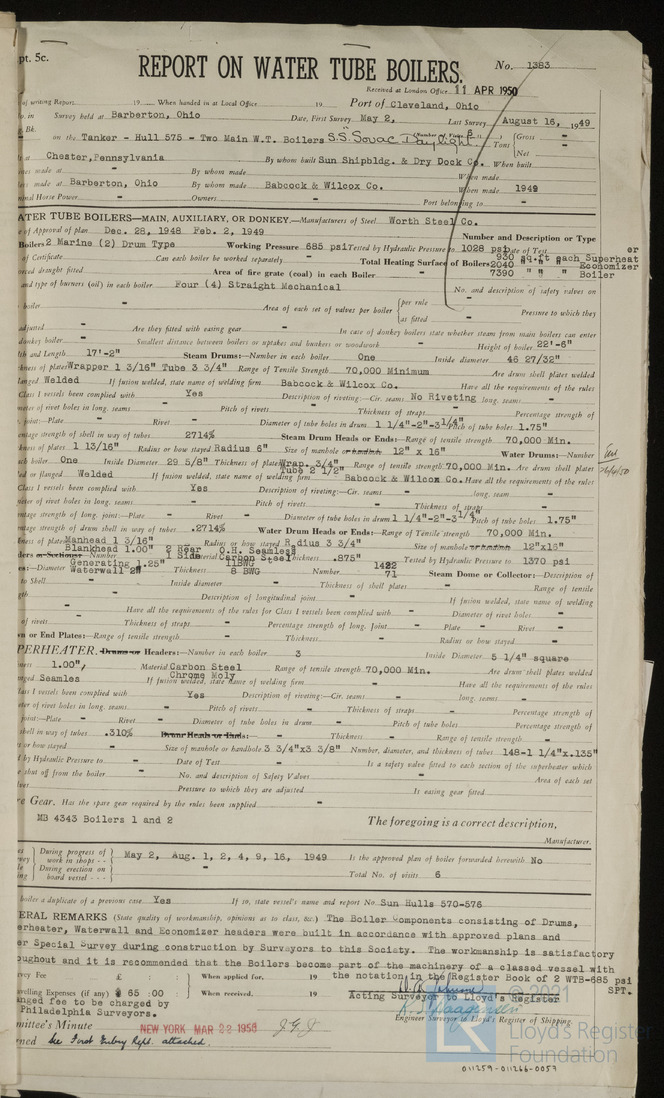 pt. 5c.
REPORT ON WATER TUBE BOILERS.
No. 1383
Received at London Office 11 APR 1950
of writing Report 19 When handed in at Local Office 19 Port of Cleveland, Ohio
Survey held at Barberton, Ohio Date, First Survey May 2, Last Survey August 16, 1949
Bk.
on the Tanker - Hull 575 - Two Main W.T. Boilers S.S. Sovac Daylight Tons Gross - Net -
at Chester, Pennsylvania By whom built Sun Shipbldg. & Dry Dock Co. When built
made at - By whom made - When made -
made at Barberton, Ohio By whom made Babcock & Wilcox Co. When made 1949
Horse Power - Owners - Port belonging to -
ATER TUBE BOILERS—MAIN, AUXILIARY, OR DONKEY.—Manufacturers of Steel Worth Steel Co.
of Approval of plan Dec. 28, 1948 Feb. 2, 1949 Number and Description or Type
Boilers 2 Marine (2) Drum Type Working Pressure 685 psi Tested by Hydraulic Pressure to 1028 psi Date of Test er
of Certificate Can each boiler be worked separately - Total Heating Surface of Boilers 930 sq.ft each Superheat
2040 " " " Economizer
forced draught fitted Area of fire grate (coal) in each Boiler - 7390 " " " Boiler
and type of burners (oil) in each boiler Four (4) Straight Mechanical No. and description of safety valves on
boiler - Area of each set of valves per boiler per rule - as fitted - Pressure to which they
adjusted - Are they fitted with easing gear - In case of donkey boilers state whether steam from main boilers can enter
donkey boiler - Smallest distance between boilers or uptakes and bunkers or woodwork - Height of boiler 22'-6"
and Length 17'-2" Steam Drums:—Number in each boiler One Inside diameter 46 27/32"
ness of plates Wrapper 1 3/16" Tube 3 3/4" Range of Tensile Strength 70,000 Minimum Are drum shell plates welded
flanged Welded If fusion welded, state name of welding firm Babcock & Wilcox Co. Have all the requirements of the rules
Class I vessels been complied with Yes Description of riveting:—Cir. seams No Riveting long. seams -
meter of rivet holes in long. seams - Pitch of rivets - Thickness of straps - Percentage strength of
joint:—Plate - Rivet - Diameter of tube holes in drum 1 1/4"-2"-3 1/4" Pitch of tube holes 1.75"
entage strength of shell in way of tubes 2714% Steam Drum Heads or Ends:—Range of tensile strength 70,000 Min.
ness of plates 1 13/16" Radius or how stayed Radius 6" Size of manhole or handhole 12" x 16" Water Drums:—Number
each boiler One Inside Diameter 29 5/8" Thickness of plates Wrap. 3/4" Tube 2 1/2" Range of tensile strength 70,000 Min. Are drum shell plates
ed or flanged Welded If fusion welded, state name of welding firm Babcock & Wilcox Co. Have all the requirements of the rules
Class I vessels been complied with Yes Description of riveting:—Cir. seams - long. seam -
meter of rivet holes in long. seams - Pitch of rivets - Thickness of straps
entage strength of long. joint:—Plate - Rivet - Diameter of tube holes in drum 1 1/4"-2"-3 1/4" Pitch of tube holes 1.75"
entage strength of drum shell in way of tubes .2714% Water Drum Heads or Ends:—Range of Tensile strength 70,000 Min.
ness of plates Manhead 1 3/16" Blankhead 1.00" Radius or how stayed R dius 3 3/4" Size of manhole or handhole 12"x16"
ders or Sections:—Number 2 Rear 1 Side Material O.H. Seamless Carbon Steel Thickness .875" Tested by Hydraulic Pressure to 1370 psi
es:—Diameter Generating 1.25" Waterwall 2" Thickness 11BWG 8 BWG Number 1422 71 Steam Dome or Collector:—Description of
to Shell - Inside diameter - Thickness of shell plates - Range of tensile
gth - Description of longitudinal joint - If fusion welded, state name of welding
- Have all the requirements of the rules for Class I vessels been complied with - Diameter of rivet holes -
of rivets - Thickness of straps - Percentage strength of long. Joint - Plate - Rivet -
n or End Plates:—Range of tensile strength - Thickness - Radius or how stayed -
PERHEATER. Drums or Headers:—Number in each boiler 3 Inside Diameter 5 1/4" square
ness 1.00", Material Carbon Steel Chrome Moly Range of tensile strength 70,000 Min. Are drum shell plates welded
nged Seamles If fusion welded, state name of welding firm - Have all the requirements of the rules
lass I vessels been complied with Yes Description of riveting:—Cir. seams - long. seams -
eter of rivet holes in long. seams - Pitch of rivets - Thickness of straps - Percentage strength of
joint:—Plate - Rivet - Diameter of tube holes in drum - Pitch of tube holes - Percentage strength of
shell in way of tubes .310% Drum Heads or Ends:— Thickness - Range of tensile strength -
or how stayed - Size of manhole or handhole 3 3/4"x3 3/8" Number, diameter, and thickness of tubes 148-1 1/4"x.135"
by Hydraulic Pressure to - Date of Test - Is a safety valve fitted to each section of the superheater which
shut off from the boiler - No. and description of Safety Valves - Area of each set
lves - Pressure to which they are adjusted - Is easing gear fitted -
re Gear. Has the spare gear required by the rules been supplied -
MB 4343 Boilers 1 and 2 The foregoing is a correct description,
Manufacturer.
During progress of work in shops - - May 2, Aug. 1, 2, 4, 9, 16, 1949 Is the approved plan of boiler forwarded herewith No
During erection on board vessel - - - - Total No. of visits 6
boiler a duplicate of a previous case Yes If so, state vessel's name and report No. Sun Hulls 570-576
ERAL REMARKS (State quality of workmanship, opinions as to class, &c.) The Boiler Components consisting of Drums,
erheater, Waterwall and Economizer headers were built in accordance with approved plans and
er Special Survey during construction by Surveyors to this Society. The workmanship is satisfactory
oughout and it is recommended that the Boilers become part of the machinery of a classed vessel with
the notation in the Register Book of 2 WTB-685 psi
SPT.
vey Fee £ : : When applied for, 19
velling Expenses (if any) $ 65 : 00 When received, 19
Acting Surveyor to Lloyd's Register
nged fee to be charged by
Philadelphia Surveyors.
Engineer Surveyor to Lloyd's Register of Shipping.
mittee's Minute NEW YORK MAR 22 1950
ned See First Entry Rept. attached.
© 2021
Lloyd's Register
Foundation
011259-011266-0057